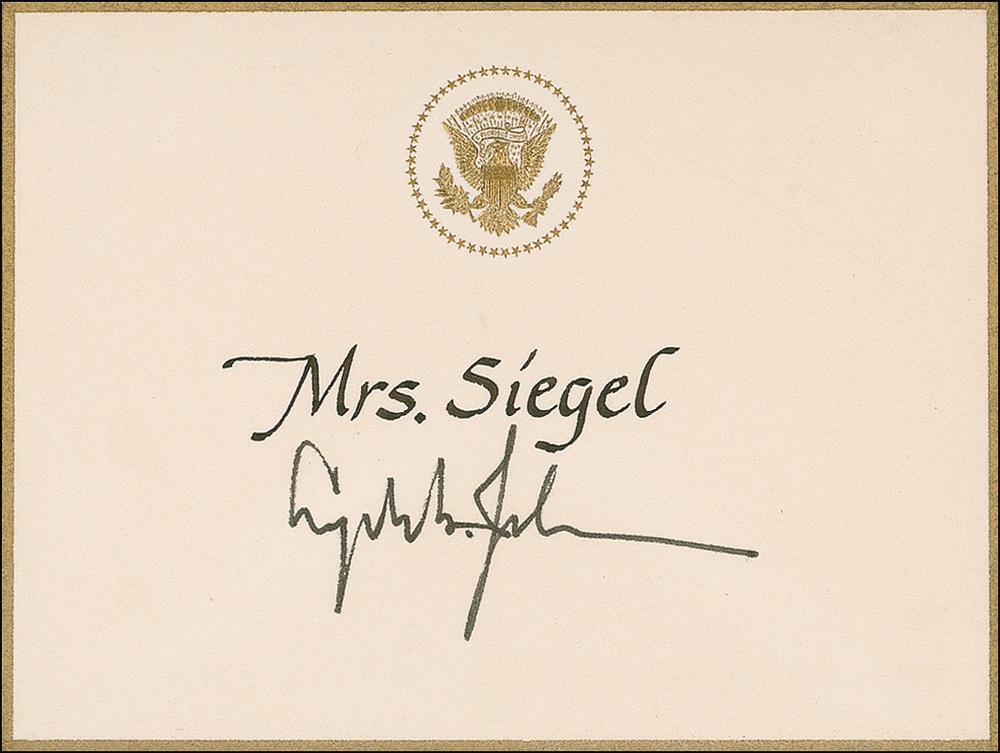 Mrs. Siegel
Lyndon B. Johnson